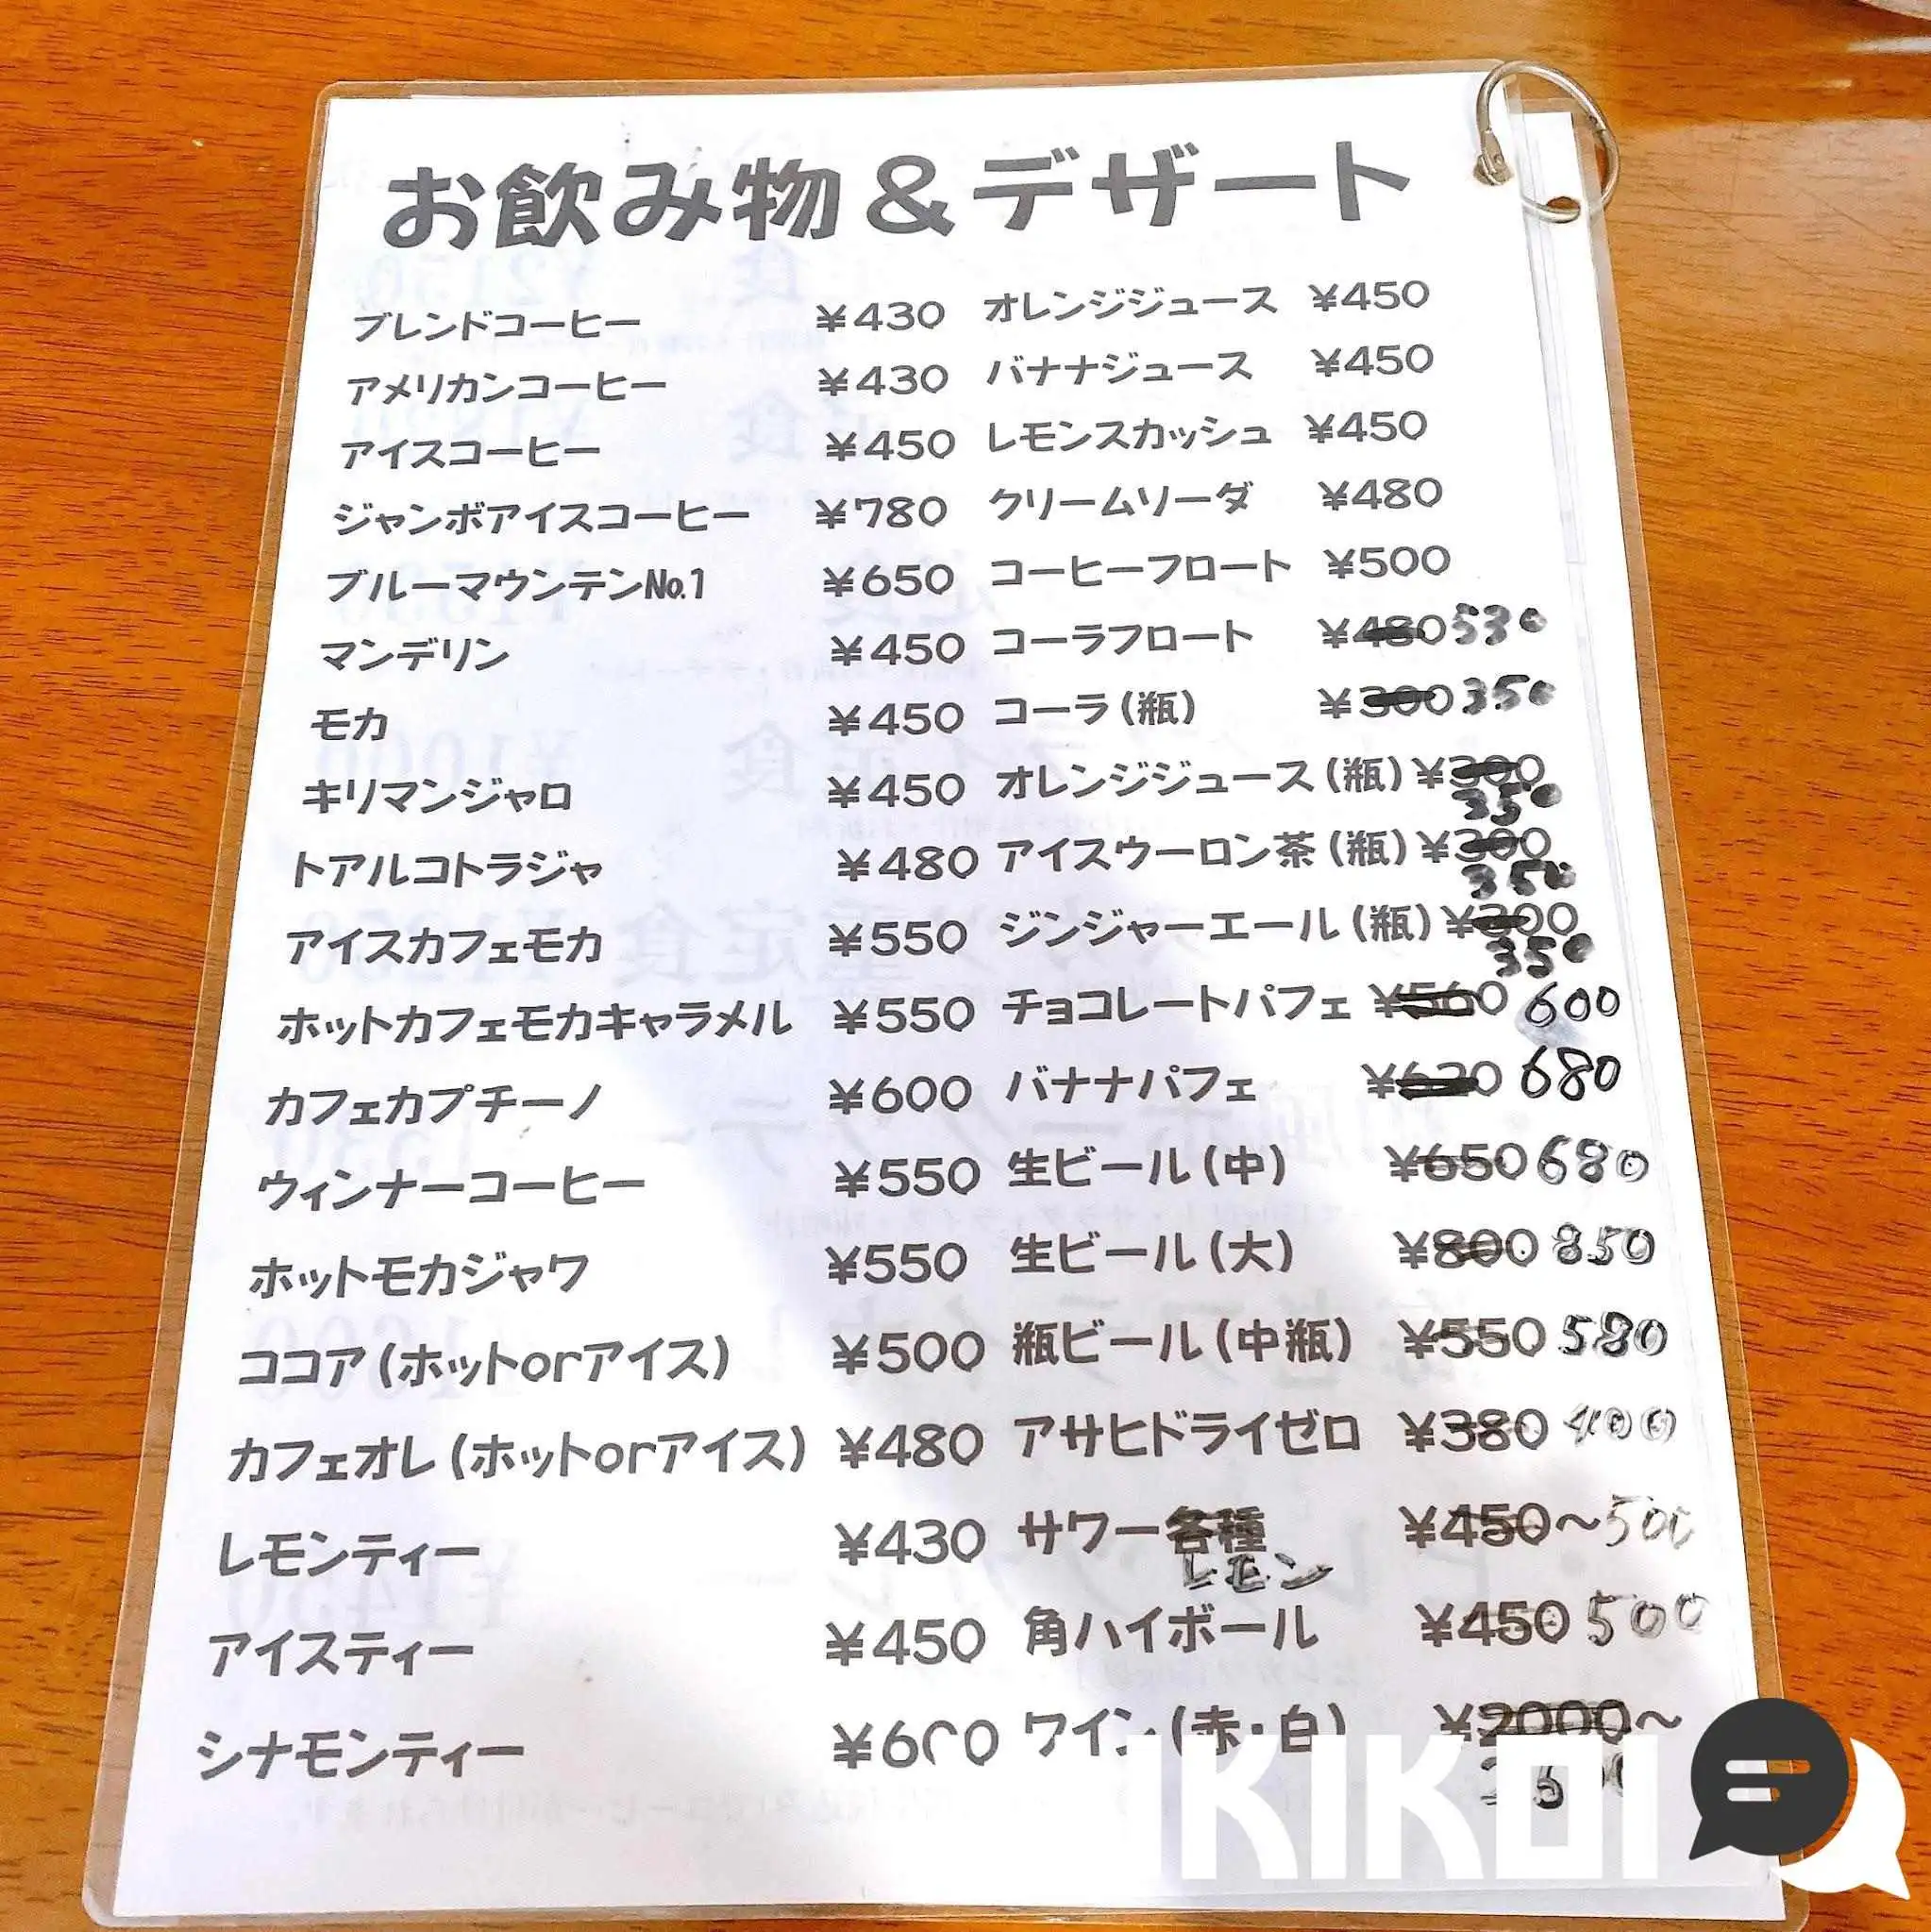 お飲み物&デザート
ブレンドコーヒー ¥430
アメリカンコーヒー ¥430
アイスコーヒー ¥450
ジャンボアイスコーヒー ¥780
ブルーマウンテンNo.1 ¥650
マンデリン ¥450
モカ ¥450
キリマンジャロ ¥450
トアルコトラジャ ¥480
アイスカフェモカ ¥550
ホットカフェモカキャラメル ¥550
カフェカプチーノ ¥600
ウィンナーコーヒー ¥550
ホットモカジャワ ¥550
ココア(ホットorアイス) ¥500
カフェオレ(ホットorアイス) ¥480
レモンティー ¥430
アイスティー ¥450
シナモンティー ¥600
オレンジジュース ¥450
バナナジュース ¥450
レモンスカッシュ ¥450
クリームソーダ ¥480
コーヒーフロート ¥500
コーラフロート ¥480 530
コーラ(瓶) ¥300 350
オレンジジュース(瓶) ¥300
350
アイスウーロン茶(瓶) ¥300
350
ジンジャーエール(瓶) ¥300
350
チョコレートパフェ ¥560 600
バナナパフェ ¥630 680
生ビール(中) ¥650 680
生ビール(大) ¥800 850
瓶ビール(中瓶) ¥550 580
アサヒドライゼロ ¥380 400
サワー各種 ¥450〜500
レモン
角ハイボール ¥450 500
ワイン(赤・白) ¥2000〜
KIKOI